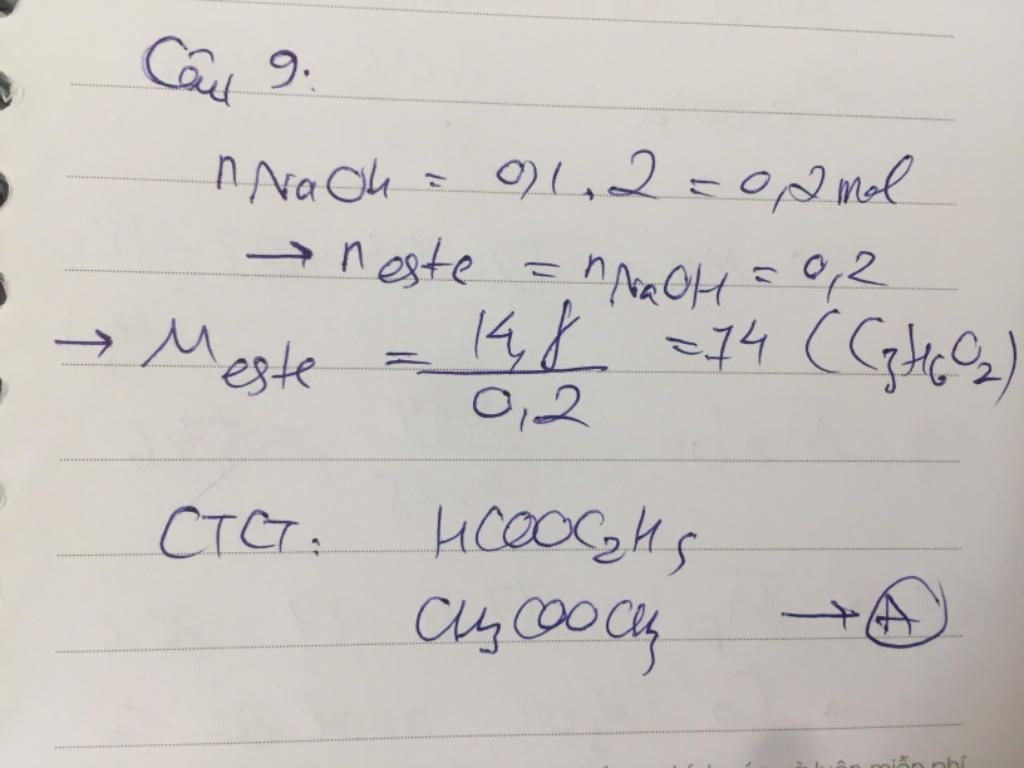 Câu 9:
nNaOH = 0,1.2 = 0,2 mol
→ n este = nNaOH = 0,2
→ M este = 14,8 / 0,2 = 74 (C3H6O2)
CTCT: HCOOC2H5
CH3COOCH3 → A
miễn phí